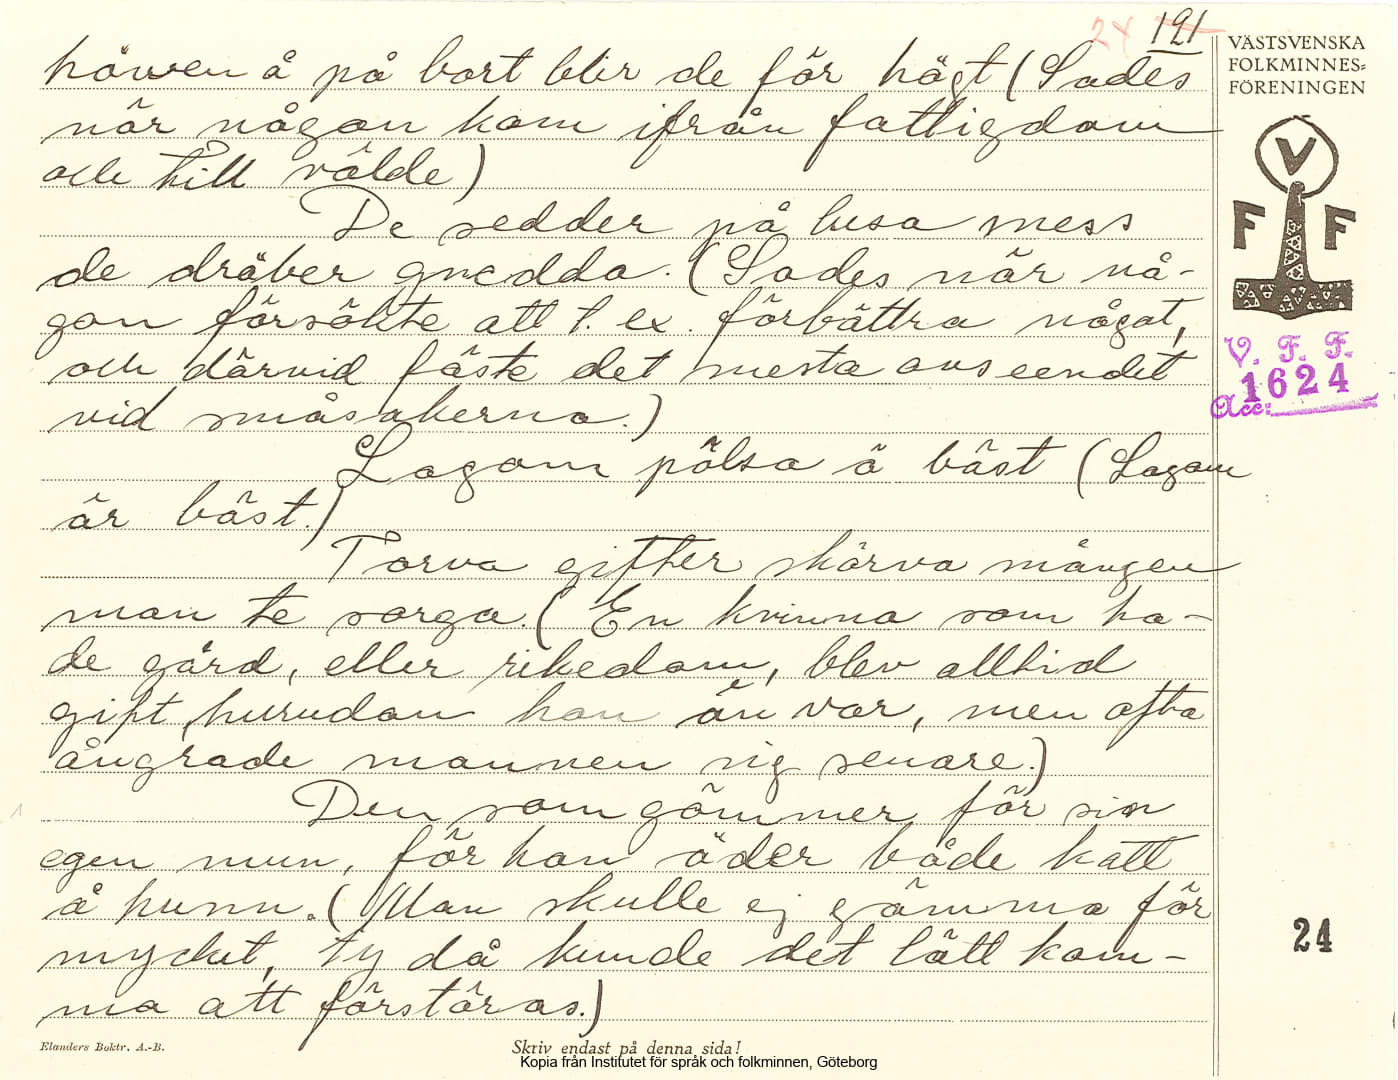 24 121
höwen å på bort blir de för högt (Sades
när någon kom ifrån fattigdom
och till välde)
De redder på lusa mess
de dräber gnedda. (Sades när nå-
gon försökte att t. ex. förbättra något,
och därvid fäste det mesta avseendet
vid småsakerna.)
Lagom pölsa ä bäst (Lagom
är bäst.)
Torva gifter skärva mången
man te sorga. (En kvinna som ha-
de gård, eller rikedom, blev alltid
gift, hurudan hon än var, men ofta
ångrade mannen sig senare.)
Den som gömmer för sin
egen mun, för han äder både katt
å hunn. (Man skulle ej gömma för
mycket, ty då kunde det lätt kom-
ma att förstöras.)
VÄSTSVENSKA
FOLKMINNES=
FÖRENINGEN
V
F F
V. F. F.
Acc: 1624
24
Elanders Boktr. A.-B.
Skriv endast på denna sida!
Kopia från Institutet för språk och folkminnen, Göteborg